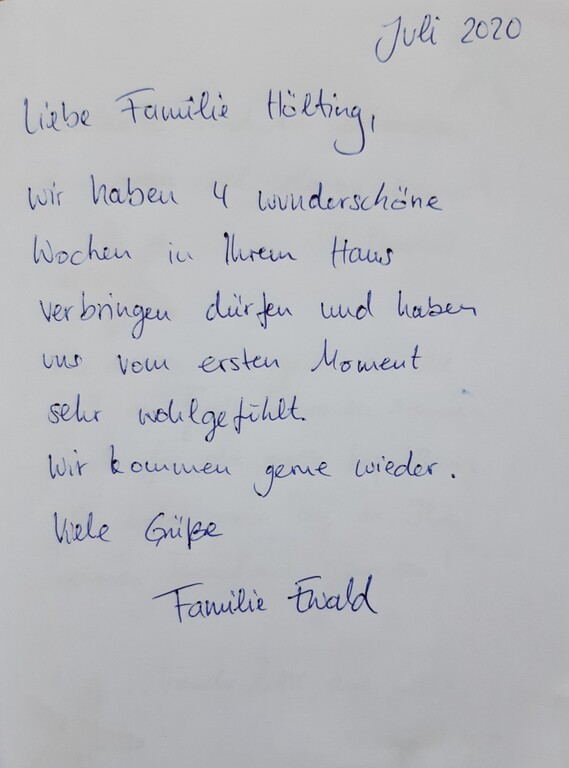 Juli 2020
Liebe Familie Hölting,
wir haben 4 wunderschöne
Wochen in Ihrem Haus
verbringen dürfen und haben
uns vom ersten Moment
sehr wohlgefühlt.
Wir kommen gerne wieder.
Viele Grüße
Familie Ewald